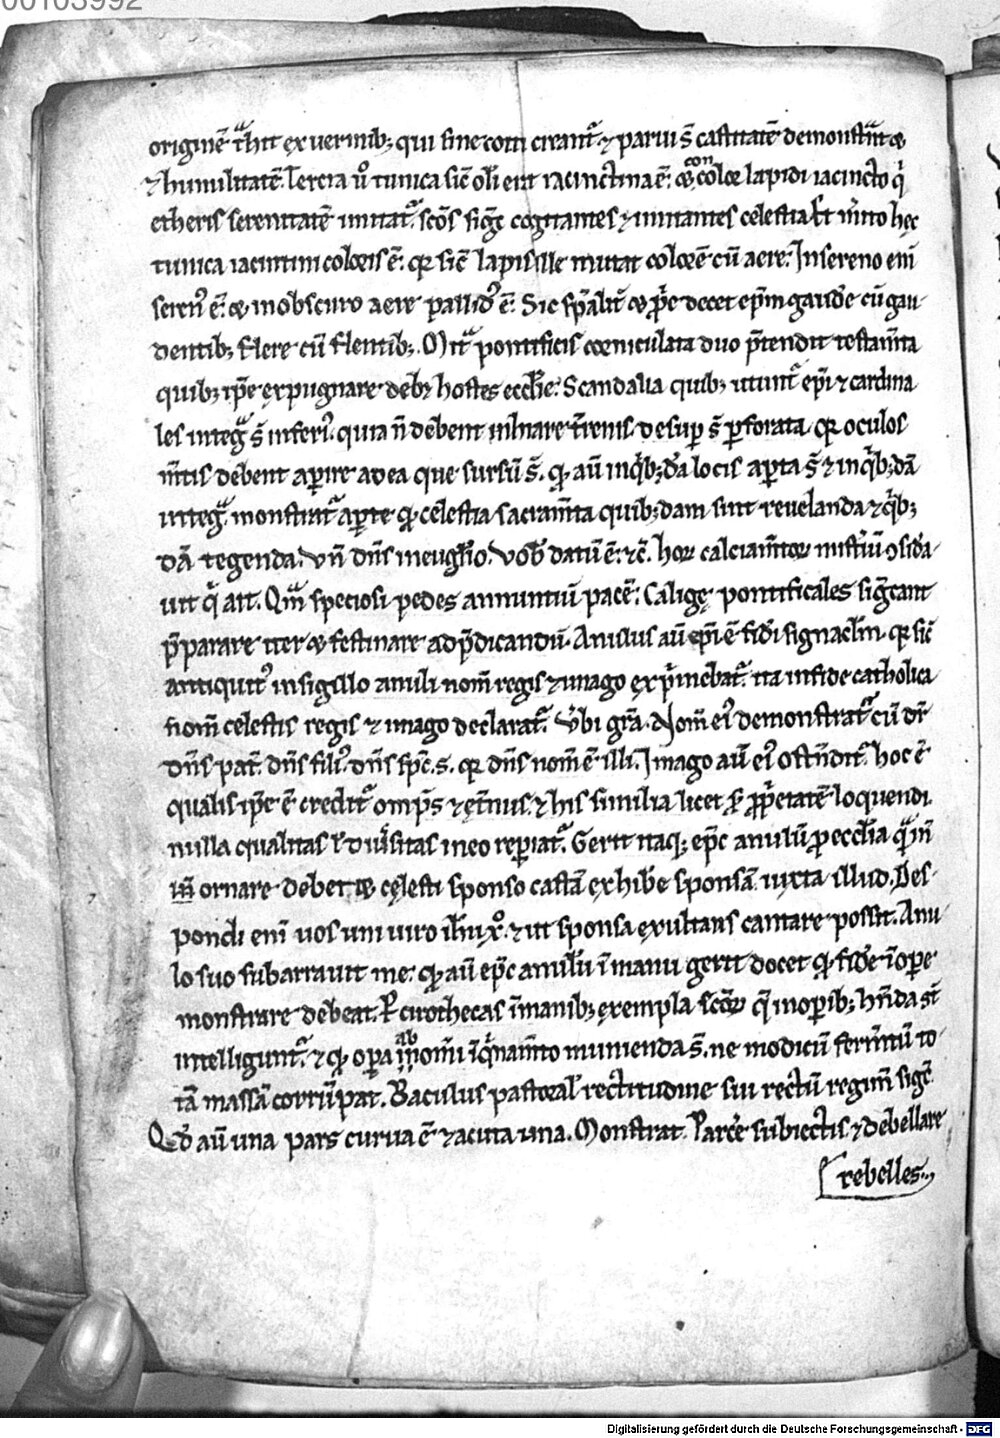 00103992
originē trahit ex vermib; qui sine coitu creant᷑ ⁊ parui s̄ castitatē demonstrat
⁊ humilitatē. Tercia ū tunica sic̄ oli erat iacinctina ē. color lapidi iacincto q̄
etheris serenitatē imitat᷑. sc̄os siḡt cogitantes ⁊ imitantes celestia. Et m̄ito hęc
tunica iacintini coloris ē. qr sic̄ lapis ille mutat colorē cū aere. In sereno eni
seren᷒ ē. ⁊ in obscuro aere pallid᷒ ē. Sic sp̄alit᷑ decet ep̄m gaudē cū gau-
dentib; flere cū flentib;. Mitra pontificis corniculata duo p̄tendit testam̄ta
quib; ip̄e expugnare deb; hostes eccl̄ie. Scandalia quib; utunt᷑ ep̄i ⁊ cardina
les integra s̄ inferi᷒. quia n̄ debent inhiare t̄renis. desup s̄ pforata. qr oculos
m̄tis debent apire ad ea que sursū s̄. qd aū in q̄b;dā locis apta s̄ ⁊ in q̄b;dā
integra. monstrat᷑ apte qd celestia sacram̄ta quib;dam sint reuelanda ⁊ q̄b;
dā tegenda. Vn̄ dn̄s in euglio. Vob datū ē. ⁊c̄. hor calciam̄tor mist̄iū ↄsid̄a-
uit q̄ ait. Qm̄ speciosi pedes annuntiū pacē. Calige pontificales siḡcant
p̄parare iter ⁊ festinare ad p̄dicandū. Anulus aū ep̄i ē fidei signacl̄m. qr sic̄
antiquit᷒ in sigillo anuli nom̄ regis ⁊ imago exp̄mebat᷑. ita in fide catholica
nom̄ celestis regis ⁊ imago declarat᷑. Vbi gr̄a. Nom̄ ei᷒ demonstrat᷑ cū dr̄
dn̄s pat᷑. dn̄s fili᷒. dn̄s sp̄c.s. qr dn̄s nom̄ ē illi. Imago aū ei᷒ ostn̄dit᷑. hoc ē
qualis ip̄e ē credit᷑ omp̄s ⁊ et̄nus. ⁊ his similia licet s̄ p̄prietatē loquendi
nulla equalitas ł diu̓sitas in eo repiat᷑. Gerit itaq; ep̄c anulū p eccl̄ia
ornare debet ⁊ celesti sponso castā exhibē sponsā. iuxta illud. Des-
pondi eni uos uni uiro ih̄u xp̄o. ⁊ ut sponsa exultans cantare possit. Anu-
lo suo subarrauit me. qd aū ep̄c anulū ī manu gerit docet qd fidē ī ope
monstrare debeat. P cirothecas ī manib; exempla sc̄or q̄ in opib; hn̄da st̄
intelligunt᷑. ⁊ qd opa ab om̄i īq̄nam̄to munienda s̄. ne modicū ferm̄tū to-
tā massā corrūpat. Baculus pastoral᷒ rectitudine sui rectū regim̄ siḡt.
Qd aū una pars curua ē ⁊ acuta una. Monstrat. Parce subiectis ⁊ debellare
rebelles.
Digitalisierung gefördert durch die Deutsche Forschungsgemeinschaft - DFG